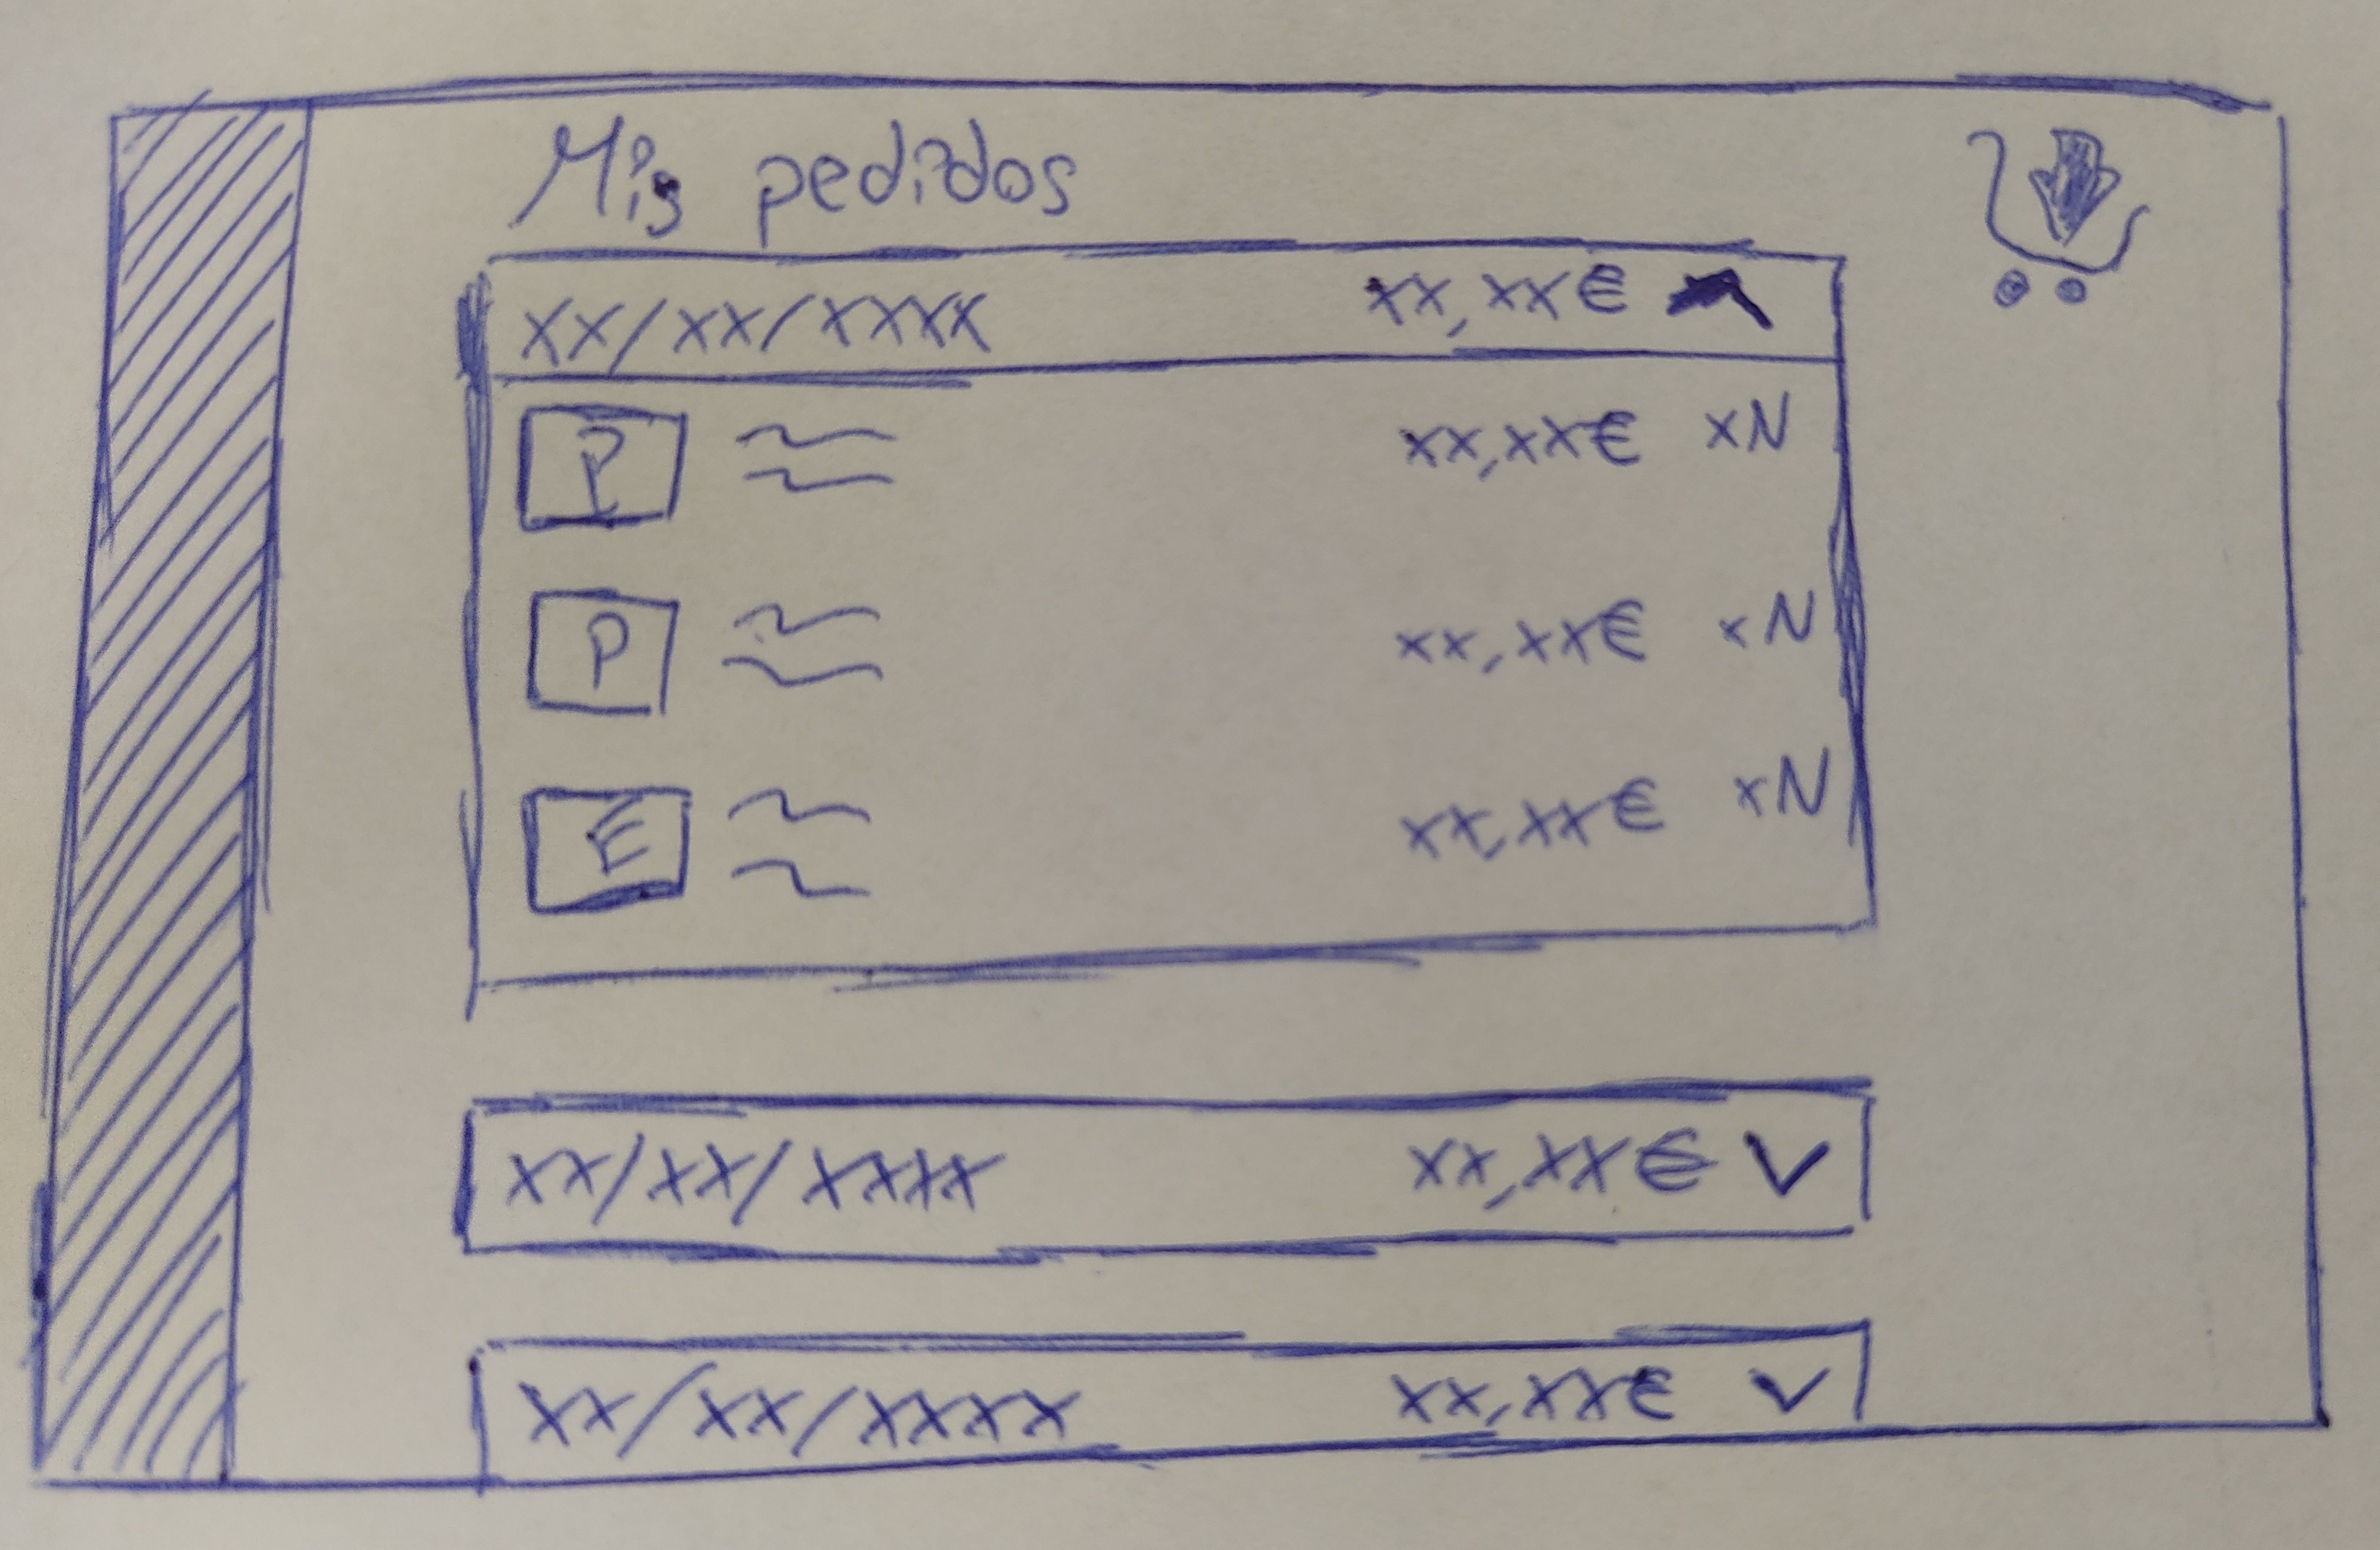 Mis pedidos
xx/xx/xxxx xx,xx€
P xx,xx€ xN
P xx,xx€ xN
E xx,xx€ xN
xx/xx/xxxx xx,xx€
xx/xx/xxxx xx,xx€